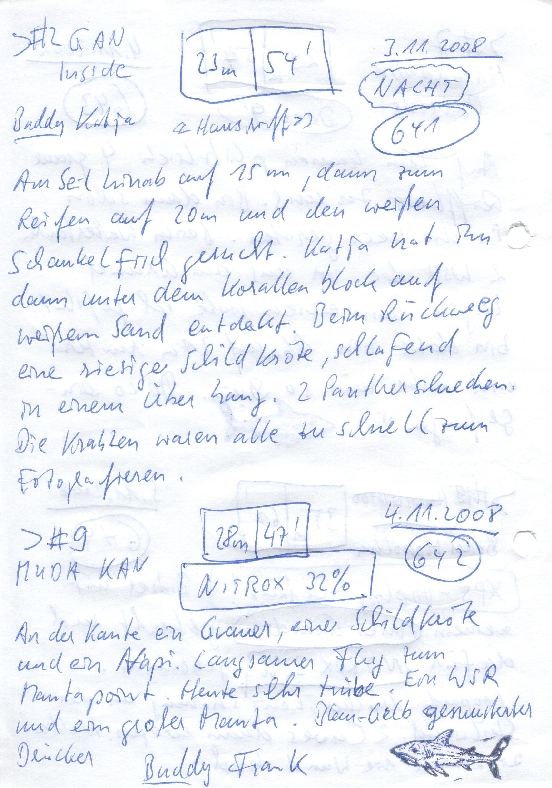 >#2 GAN
Inside
23m 54'
3.11.2008
NACHT
641
Buddy Katja
<<Hausriff>>
Am Seil hinab auf 15 m, dann zum
Reifen auf 20m und den weißen
Schaukelfisch gesucht. Katja hat ihn
dann unter dem Korallenblock auf
weißem Sand entdekt. Beim Rückweg
eine riesige Schildkröte, schlafend
in einem Überhang. 2 Pantherschnecken.
Die Krabben waren alle zu schnell zum
Fotografieren.
>#9
MUDA KAN
28m 47'
NITROX 32%
4.11.2008
642
An der Kante ein Grauer, eine Schildkröte
und ein Napi. Langsamer Flug zum
Mantapoint. Heute sehr trübe. Ein WSR
und ein großer Manta. Blau-Gelb gemusterter
Drücker
Buddy Frank